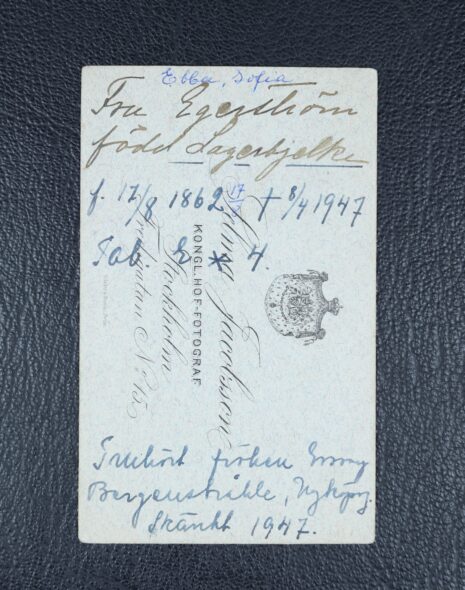 Ebba, Sofia
Fru Egerström
född Lagerbjelke
f. 17/8 1862 † 8/4 1947
Tab 2 * 4.
Selma Jacobsson
KONGL. HOF-FOTOGRAF
Stockholm
Fredsgatan No 15
fröken
Bergenstråhle, Nyköping.
Skänkt 1947.